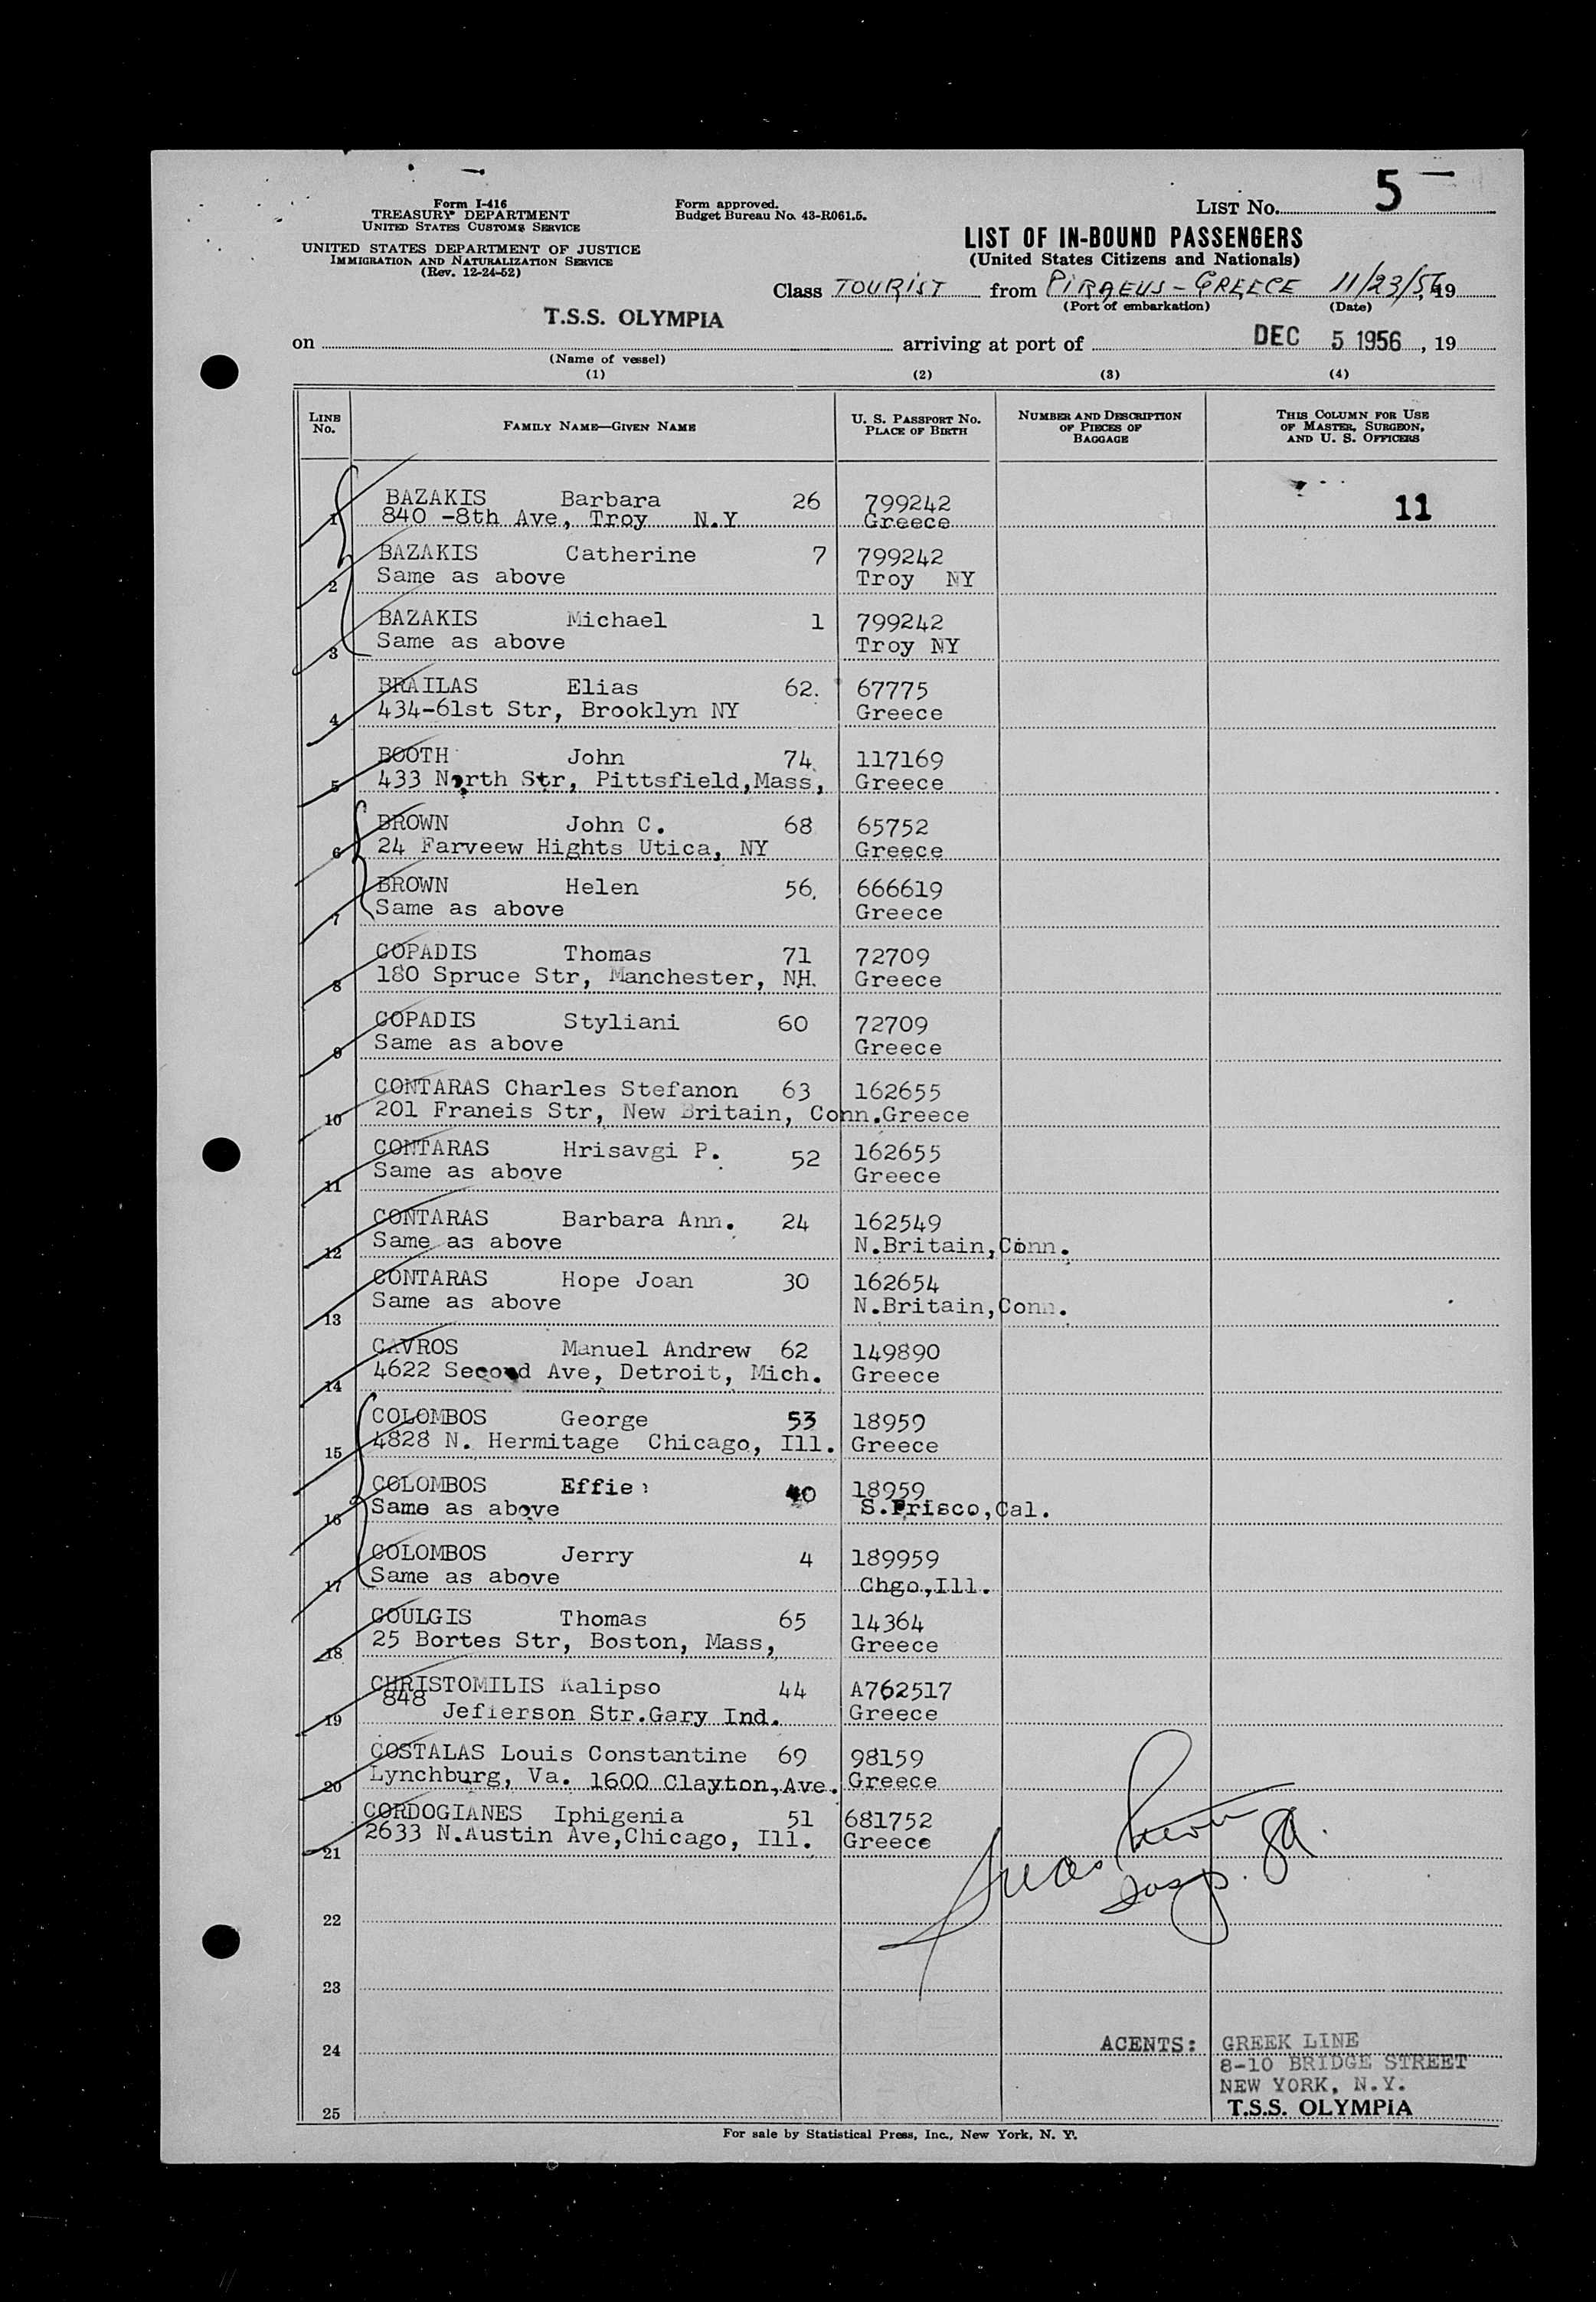 Form I-416
TREASURY DEPARTMENT
UNITED STATES CUSTOMS SERVICE
UNITED STATES DEPARTMENT OF JUSTICE
IMMIGRATION AND NATURALIZATION SERVICE
(Rev. 12-24-52)
Form approved.
Budget Bureau No. 43-R061.5.
LIST No. 5
LIST OF IN-BOUND PASSENGERS
(United States Citizens and Nationals)
Class TOURIST from PIRAEUS - GREECE 11/23/56, 19
(Port of embarkation) (Date)
T.S.S. OLYMPIA
on arriving at port of DEC 5 1956, 19
(Name of vessel)
(1) (2) (3) (4)
LINE No. FAMILY NAME—GIVEN NAME U. S. PASSPORT No. PLACE OF BIRTH NUMBER AND DESCRIPTION OF PIECES OF BAGGAGE THIS COLUMN FOR USE OF MASTER, SURGEON, AND U. S. OFFICERS
BAZAKIS Barbara 26 799242 11
1 840 -8th Ave, Troy N.Y Greece
BAZAKIS Catherine 7 799242
2 Same as above Troy NY
BAZAKIS Michael 1 799242
3 Same as above Troy NY
BRAILAS Elias 62. 67775
4 434-61st Str, Brooklyn NY Greece
BOOTH John 74 117169
5 433 North Str, Pittsfield,Mass, Greece
BROWN John C. 68 65752
6 24 Farveew Hights Utica, NY Greece
BROWN Helen 56. 666619
7 Same as above Greece
COPADIS Thomas 71 72709
8 180 Spruce Str, Manchester, NH. Greece
COPADIS Styliani 60 72709
9 Same as above Greece
CONTARAS Charles Stefanon 63 162655
10 201 Franeis Str, New Britain, Conn.Greece
CONTARAS Hrisavgi P. 52 162655
11 Same as above Greece
CONTARAS Barbara Ann. 24 162549
12 Same as above N.Britain,Conn.
CONTARAS Hope Joan 30 162654
13 Same as above N.Britain,Conn.
CAVROS Manuel Andrew 62 149890
14 4622 Second Ave, Detroit, Mich. Greece
COLOMBOS George 53 18959
15 4828 N. Hermitage Chicago, Ill. Greece
COLOMBOS Effie 40 18959
16 Same as above S.Frisco,Cal.
COLOMBOS Jerry 4 189959
17 Same as above Chgo,Ill.
COULGIS Thomas 65 14364
18 25 Bortes Str, Boston, Mass, Greece
CHRISTOMILIS Kalipso 44 A762517
19 848 Jefierson Str.Gary Ind. Greece
COSTALAS Louis Constantine 69 98159
20 Lynchburg, Va. 1600 Clayton,Ave. Greece
CORDOGIANES Iphigenia 51 681752
21 2633 N.Austin Ave,Chicago, Ill. Greece
22
23
24 ACENTS: GREEK LINE
8-10 BRIDGE STREET
NEW YORK, N.Y.
25 T.S.S. OLYMPIA
For sale by Statistical Press, Inc., New York, N. Y.